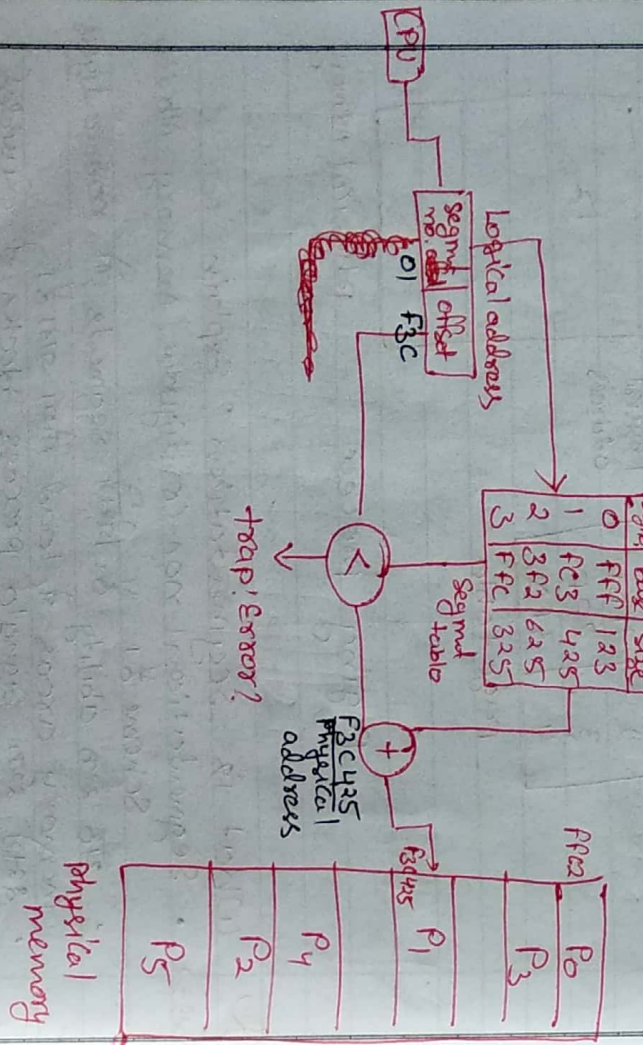 CPU
Logical address
segmt no. offset
01 F3C
base size
0 FFF 123
1 FC3 425
2 3F2 625
3 FFC 325
segmt table
<
trap: Error?
+
F3C425
physical
address
FFC2
F3C425
P0
P3
P1
P4
P2
P5
Physical
memory